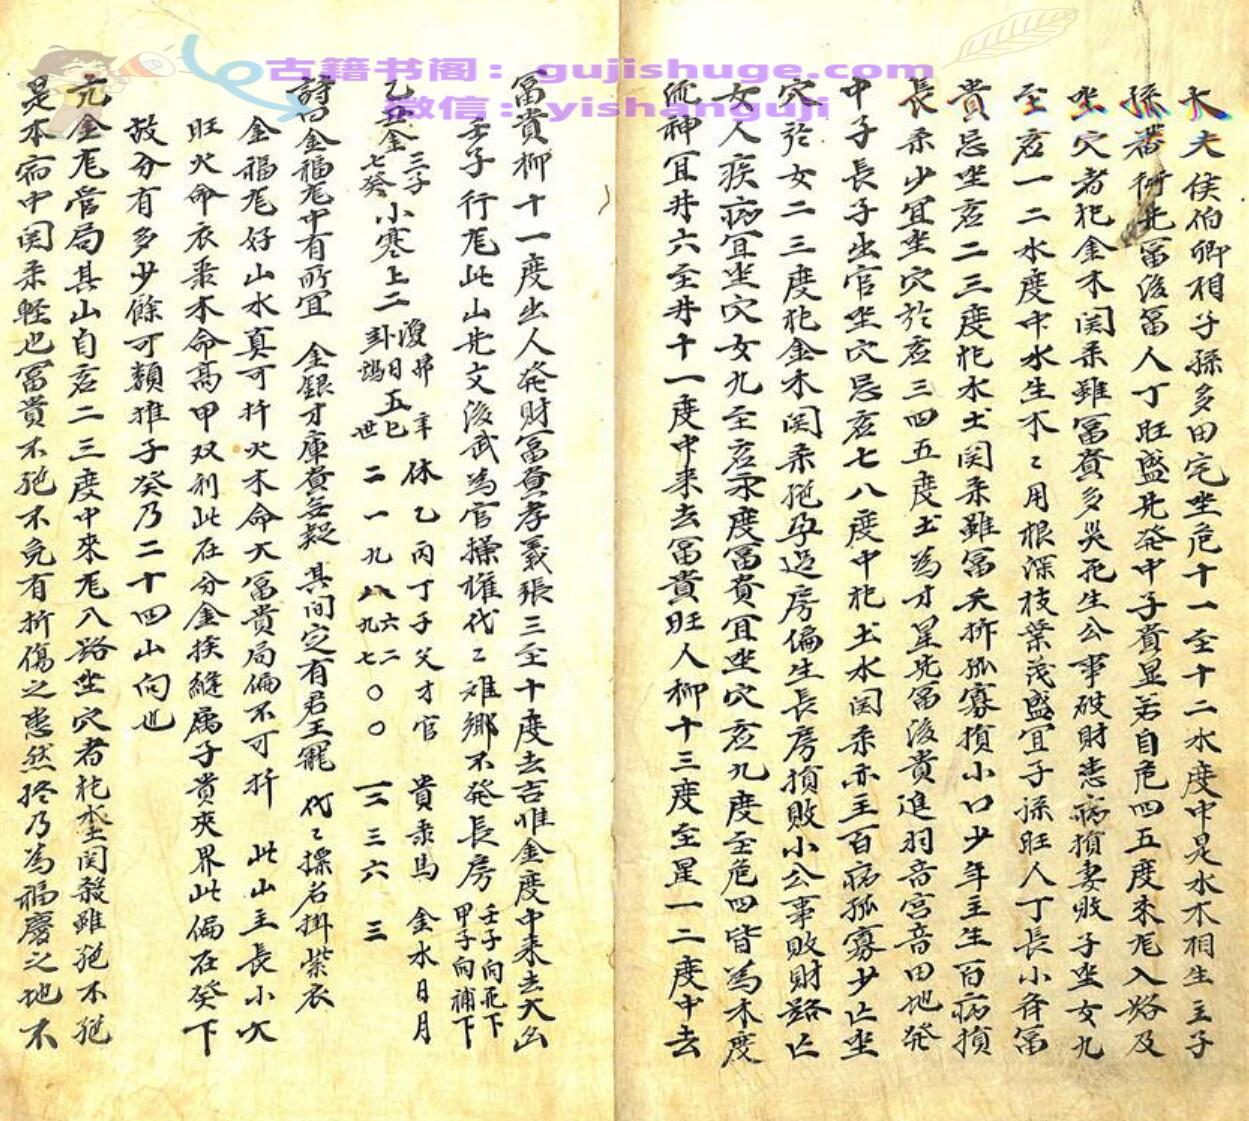 古籍书阁：gujishuge.com
微信：yishanguji
大夫侯伯卿相子孫多田宅坐危十一至十二水度中是水木相生主子
孫蕃衍先富後富人丁旺盛先發中子貴显若自危四五度来尨入路及
坐穴者犯金木関杀雖富貴多災死生公事破財患病損妻敗子坐女九
至虗一二水度中水生木〻用根深枝葉茂盛宜子孫旺人丁長小倂富
貴忌坐虗二三度犯水土関杀雖富夭折孤寡損小口少年主生百病損
長杀少宜坐穴於虗三四五度土為才星先富後貴進羽音宫音田地發
中子長子出官坐穴忌虗七八度中犯土水関杀亦主百病孤寡少亡坐
穴於女二三度犯金木関杀絶孕过房偏生長房損敗小公事敗財路亡
女人疾病宜坐穴女九至虗木度富貴宜坐穴虗九度至危四皆為木度
流神宜井六至井十一度中来去富貴旺人柳十三度至星一二度中去
富貴柳十一度出人發財富貴孝義張三至十度去吉惟金度中来去大凶
壬子行尨此山先文後武為官操權代〻雄鄉不發長房 壬子向丑下 甲子向補下
乙丑金 三子 七癸 小寒上二 卦 日 五巳 年 世 休乙丙丁子父才官 貴杀馬 金水日月
二一九八六二〇 一三三六三
九七〇
詩曰金福尨中有所宜 金銀才庫貴無疑 其间定有君王寵 代〻摽名掛紫衣
金福尨好山水真可扦火木命大富貴局偏不可扦 此山主長小六
旺火命衣裘木命高甲双利此在分金挨縫属子貴夾界此偏在癸下
故分有多少餘可類推子癸乃二十四山向也
亢金尨當局其山自虗二三度中來尨八路坐穴者犯 関殺雖絶不絶
是本宿中関杀軽也富貴不絶不免有折傷之患然終乃為福慶之地不